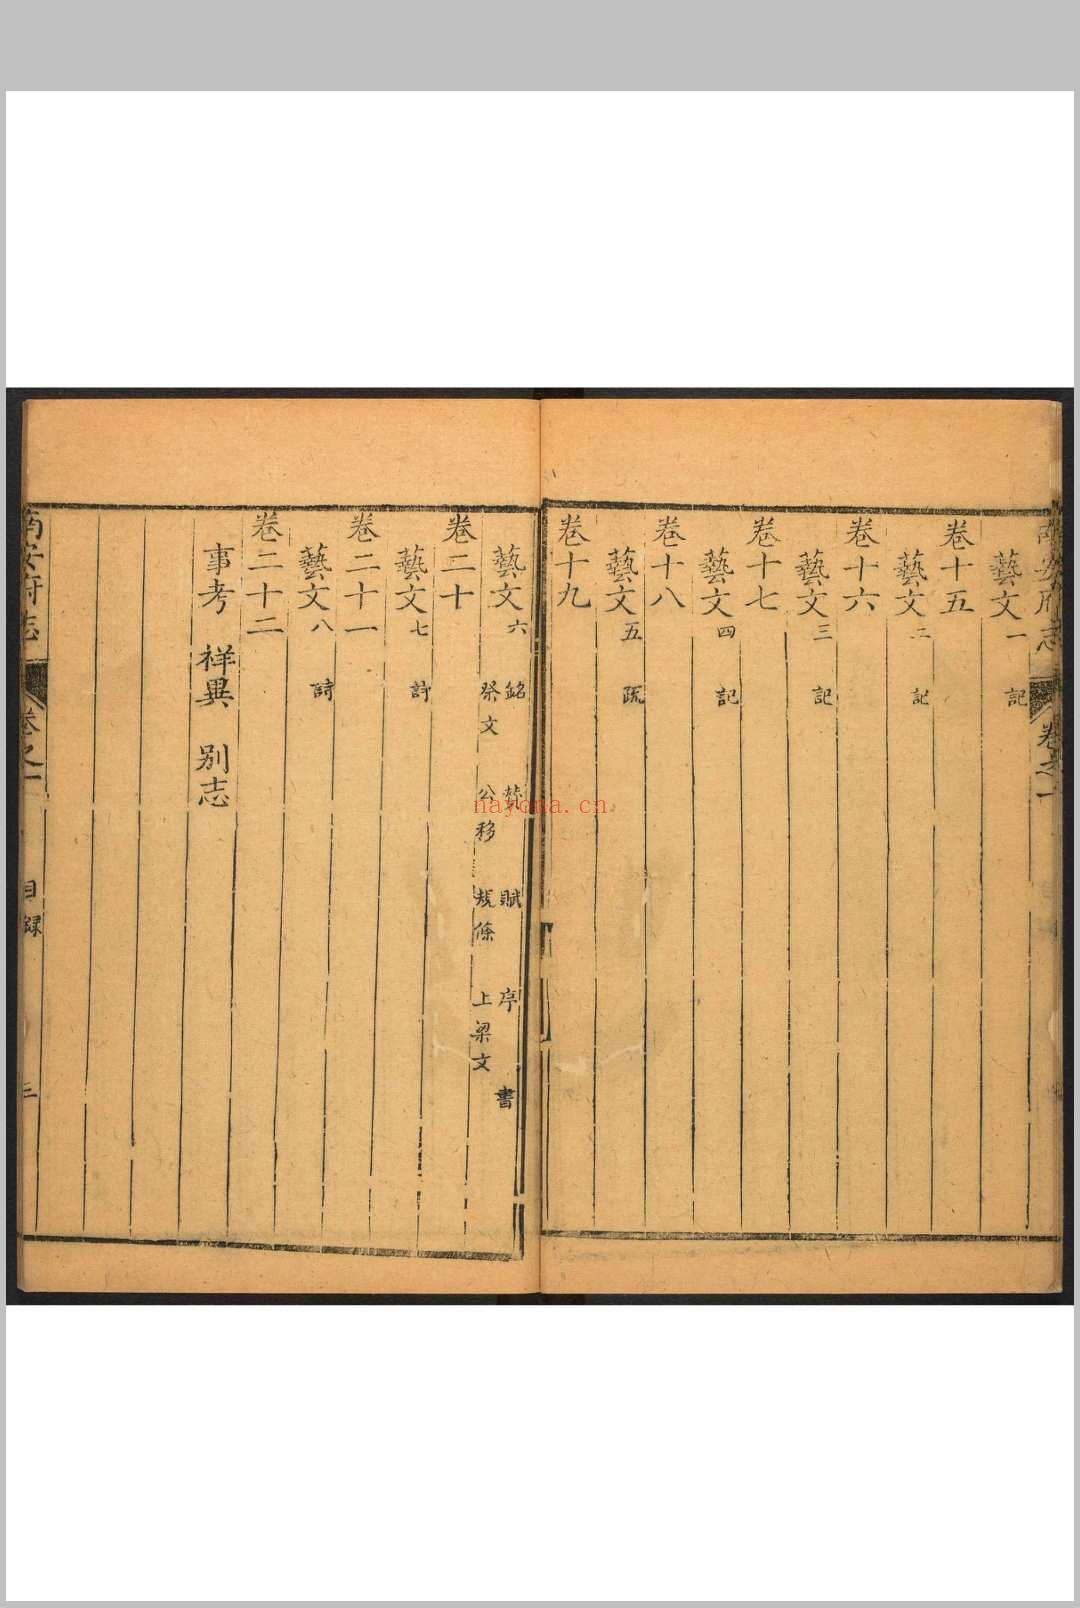 南安府志 卷之一
藝文一 記
卷十五
藝文二 記
卷十六
藝文三 記
卷十七
藝文四 記
卷十八
藝文五 疏
卷十九
藝文六 銘 贊 賦 序 書
祭文 公移 規條 上梁文
卷二十
藝文七 詩
卷二十一
藝文八 詩
卷二十二
事考 祥異 别志
南安府志 卷之一 目録 三
nayona.cn